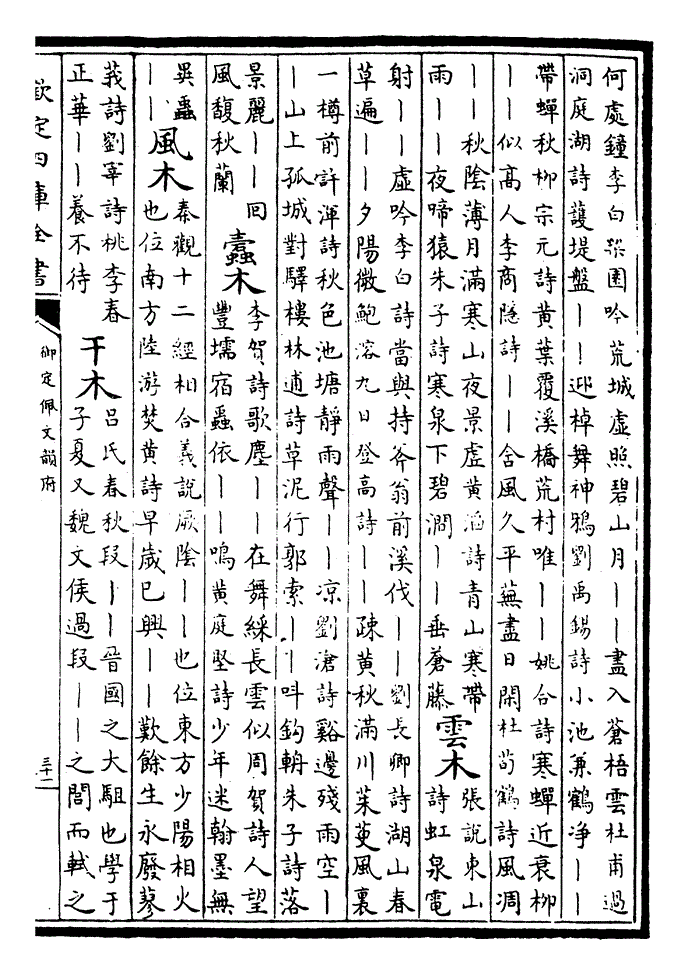 何處鐘李白梁園吟荒城虛照碧山月丨丨盡入蒼梧雲杜甫過
洞庭湖詩護堤盤丨丨迎棹舞神鴉劉禹錫詩小池兼鶴淨丨丨
帶蟬秋柳宗元詩黃葉覆溪橋荒村唯丨丨姚合詩寒蟬近衰柳
丨丨似高人李商隱詩丨丨含風久平蕪盡日閑杜荀鶴詩風凋
丨丨秋陰薄月滿寒山夜景虛黃滔詩青山寒帶
雨丨丨夜啼猿朱子詩寒泉下碧澗丨丨垂蒼藤
雲木
張說東山
詩虹泉電
射丨丨虛吟李白詩當與持斧翁前溪伐丨丨劉長卿詩湖山春
草遍丨丨夕陽微鮑溶九日登高詩丨丨疎黃秋滿川茱萸風裏
一樽前許渾詩秋色池塘靜雨聲丨丨涼劉滄詩谿邊殘雨空丨
丨山上孤城對驛樓林逋詩草泥行郭索丨丨叫鈎輈朱子詩落
景麗丨丨回
風馥秋蘭
蠹木
李賀詩歌塵丨丨在舞綵長雲似周賀詩人望
豐壖宿蟲依丨丨鳴黃庭堅詩少年迷翰墨無
異蟲
丨丨
風木
秦觀十二經相合義說厥陰丨丨也位東方少陽相火
也位南方陸游焚黃詩早歲已興丨丨歎餘生永廢蓼
莪詩劉宰詩桃李春
正華丨丨養不待
干木
呂氏春秋段丨丨晉國之大駔也學于
子夏又魏文侯過段丨丨之閭而軾之
欽定四庫全書
御定佩文韻府
三十一